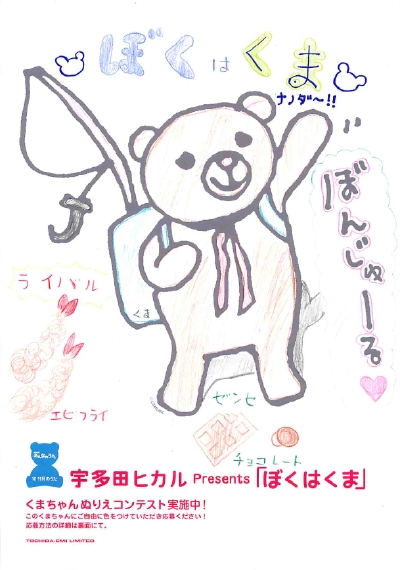 ぼくはくま
ナノダ〜!!
ぼんじゅーる
ライバル
くま
エビフライ
ゼンセ
チョコレート
宇多田ヒカル Presents「ぼくはくま」
くまちゃんぬりえコンテスト実施中!
このくまちゃんにご自由に色をつけていただき応募ください!
応募方法の詳細は裏面にて。
TOSHIBA-EMI LIMITED